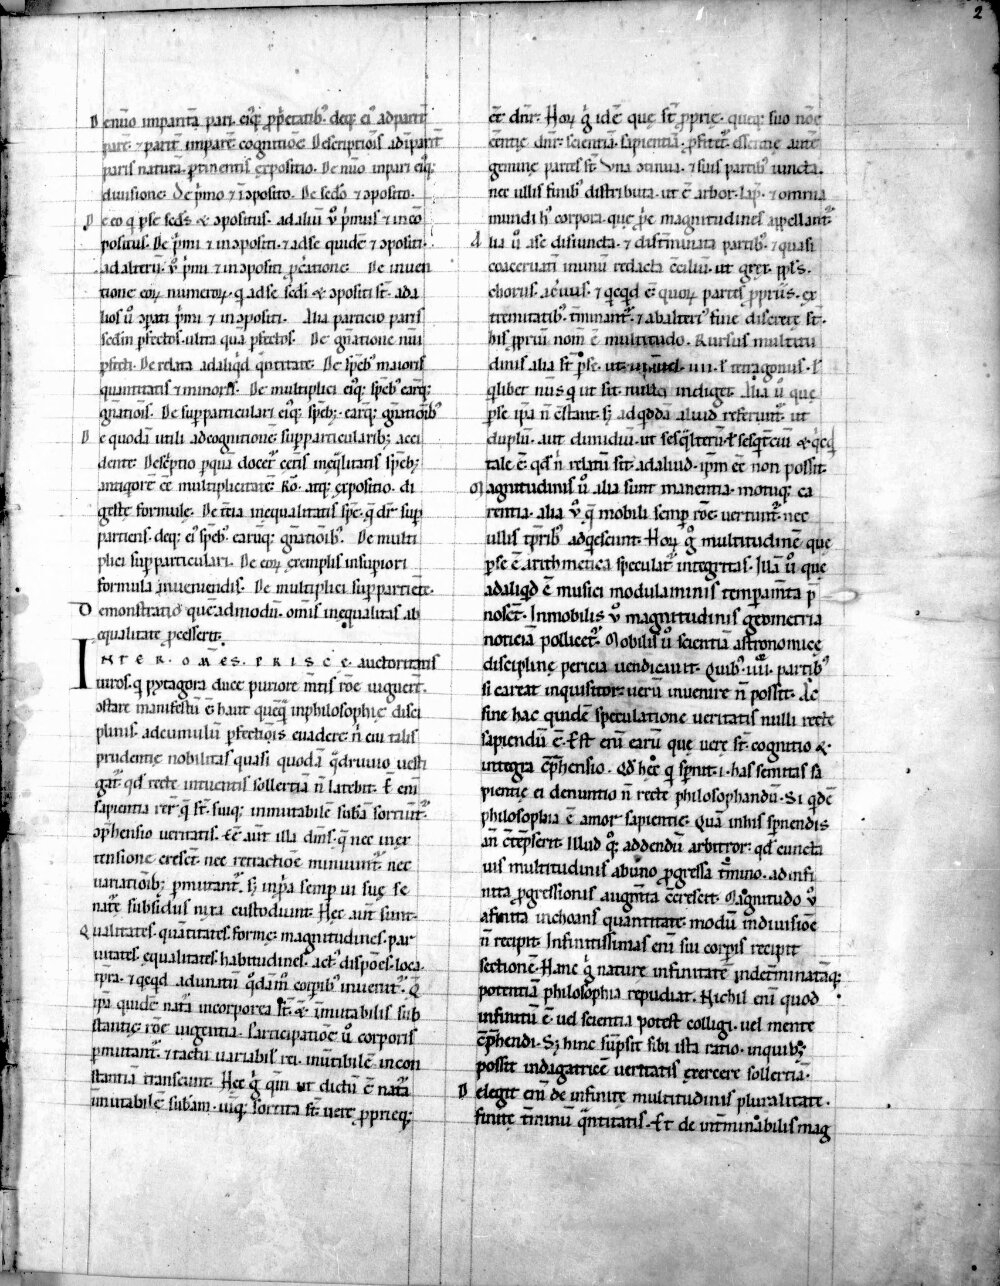 2
D enūo imparit̄a pari. eiꝰq; ꝓp̄etatibꝰ. deq; eiꝰ adparit̄
pare. ⁊ parit̄ impare. cognitiōe Descriptiōis adīparit̄
paris natura. ptinentis expositio. De nūo inpari eiꝰq;
diuisione. De p̄mo ⁊ īɔposito. De sedo ⁊ ɔposito.
D e eo q̄ p se seds ⁊ ɔpositus. ad aliū v̊ p̄mus ⁊ incō
positus. De p̄mi ⁊ inɔpositi. ⁊ adse quidē ⁊ ɔpositi.
adalterū. v̊ p̄mi ⁊ inɔpositi ꝓcreatione De inuen
tione eoꝝ numeroꝝ. q̄ adse sedi ⁊ ɔpositi st̄. ad a
lios ů ɔpati p̄mi ⁊ inɔpositi. Alia particio paris
sedm pfectos. ultra quā pfectos. De gn̄atione nūi
pfecti. De relata adaliqd q̄ntitate. De spēbꝰ maioris
quantitatis ⁊ minoris. De multiplici eiꝰq; spēbꝰ earq;
gn̄ationis. De suꝑparticulari eiꝰq; spēbꝫ. earq; gn̄ationibꝰ
D e quodā utili adcognitionē suꝑparticularibꝫ acci
dente. Desc̄ptio ꝑquā docetꝰ cet̄is ineq̄litatis spēbꝫ
antiqorē eē multiplicitatē. Rō. atq; expositio. di
gestę formulę. De tcia inequalitatis spē. q̄ dr̄ suꝑ
partiens. deq; eiꝰ spēbꝰ. earūq; gn̄ationibꝰ. De multi
plici suꝑparticulari. De eoꝝ exemplis insupiori
formula inueniendis. De multiplici suꝑpartiēte.
D emonstratio quēadmodū. omis inequalitas ab
equalitate ꝓcesserit.
INTER. OM̄ES. PRISCE. auctoritatis
uiros. q̄ pytagora duce puriore m̄tis rōe uiguer̄t.
ɔstare manifestū ē haut quēq̄ inphilosophię disci
plinis. adcumulū pfectiōis euadere n̄ cui talis
prudentię nobilitas quasi quodā q̄druuio uesti
gatꝰ. qd recte intuentis sollertiā n̄ latebit. Ē eni
sapientia rerꝝ q̄ st̄. suiq; inmutabilē subā sortiūtꝰ.
ɔphensio ueritatis. Eē aut̄ illa dm̄s. q̄ nec inter
tensione cresct̄. nec retractiōe minuuntꝰ. nec
uariationibꝫ pmutantꝰ. sꝫ inp̄a semp ui suę se
nat̄e subsidiis nixa custodiunt. Hęc aut̄ sunt.
Q ualitates. quātitates. formę. magnitudines. par
uitates. equalitates. habitudines. actꝰ. dispōes. loca.
tp̄ra. ⁊ qcqd adunatū q̄dām corpibꝰ inuenitꝰ. Q̄
ip̄a quidē nat̄a incorporea st̄. ⁊ īmutabilis sub
stantię rōe uigentia. Participatiōe ů corporis
pmutantꝰ. ⁊ tactu uariabilis rei. inūtibilē incon
stantiā transeunt. Hęc g̊ qm̄ ut dictū ē nat̄a
inmutabilē subam. uiq; sortita st̄. uere ꝓprieq;
eē dnr̄. Horꝝ g̊ idē que st̄ ꝓprię. queq; suo noīe
eēntię dnr̄. scientiā. sapientia. pfitetꝰ. essentię aut̄
geminę partes st̄. Una ɔtinua. ⁊ suis partibꝰ iuncta.
nec ullis finibꝰ distributa. ut ē arbor. lap. ⁊ omnia
mundi hꝰ corpora. que p̄e magnitudines appellantꝰ.
A lia ů ase disiuncta. ⁊ distminata partibꝰ. ⁊ quasi
coaceruati inunū redacta ɔciliū. ut grex. ppls̄.
chorus. aceruus. ⁊ qcqd ē. quorꝝ partes ꝓpriis. ex
tremitatibꝰ. tminantꝰ. ⁊ abalteriꝰ fine discrete st̄.
his ꝓpriū nom̄ ē multitudo. Rursus multitu
dinis alia st̄ pse. ut. tres. uel. iiii. ł tetragonus. ł
qlibet nūs q̄ ut sit. nullo indiget. Alia ů que
pse ip̄a n̄ ɔstant. sꝫ adqddā aliud referuntꝰ. ut
duplū. aut dimidiū. ut sesq̄lterū. ł sesq̄tciū ⁊ qcqd
tale ē. qd n̄ relatū sit adaliud. ip̄m eē non possit.
M agnitudinis ů alia sunt manentia. motuq; ca
rentia. alia v̊. q̄ mobili semp rōe. uertuntꝰ. nec
ullis tp̄ribꝰ adqescunt. Horꝝ g̊ multitudinē que
pse ē arithmetica speculatꝰ integritas. Illā ů que
adaliqd ē musici modulaminis temperam̄ta p̄
noscūt. Inmobilis v̊ magnitudinis geometria
noticiā pollicetꝰ. Mobilis ů scientiā astronomicę
disciplinę pericia uendicauit. Quibꝰ. iiii. partibꝰ
si careat inquisitor. uerū inuenire n̄ possit. Ac
sine hac quidē speculatione ueritatis nulli recte
sapiendū ē. Est eni earū que uere st̄. cognitio ⁊.
integra cp̄hensio. Qd hęc q̄ sp̄nit. i. has semitas sa
pientię ei denuntio n̄ recte philosophandū. Si qdē
philosophia ē amor sapientię. Quā inhis sp̄nendis
an̄ ctēpserit. Illud q̄; addendū arbitror. qd cuncta
uis multitudinis abuno ꝓgressa tmino. ad infi
nita ꝓgressionis augm̄ta cc̄rescit. Magnitudo v̊
afinita inchoans quantitate. modū indiuisiōe
n̄ recipit. Infinitissimas eni sui corpis recipit
sectionē. Hanc g̊ naturę infinitatē indetminatāq;
potentiā philosophia repudiat. Nichil eni quod
infinitū ē. uel scientia potest colligi. uel mente
cp̄hendi. Sꝫ hinc sūpsit sibi ista ratio. inquibꝫ
possit indagatricē ueritatis exercere sollertiā.
D elegit eni de infinitę multitudinis pluralitate.
finitę tminū q̄ntitatis. Et de int̄minabilis mag